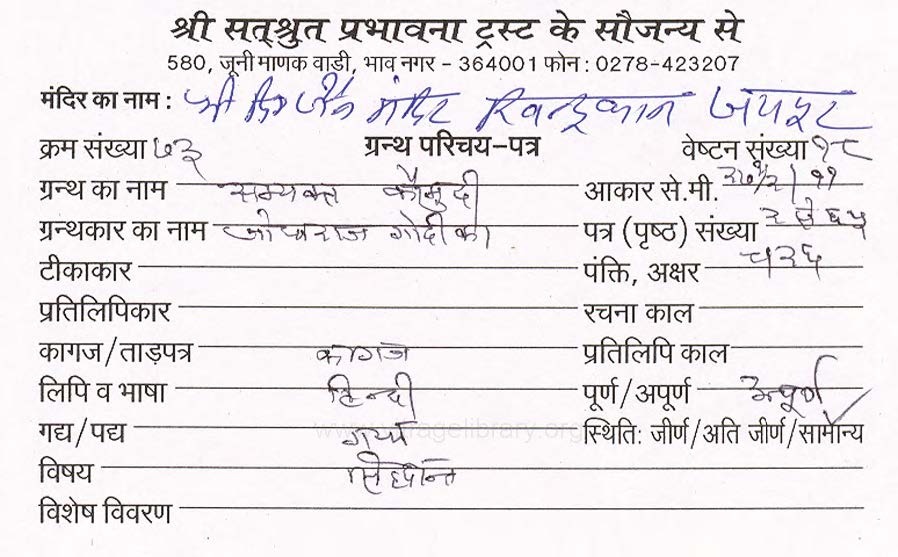 श्री सत्श्रुत प्रभावना ट्रस्ट के सौजन्य से
580, जूनी माणक वाडी, भाव नगर - 364001 फोन : 0278-423207
मंदिर का नाम : श्री दि जैन मंदिर जयपुर
क्रम संख्या ७३ ग्रन्थ परिचय-पत्र वेष्टन संख्या १८
ग्रन्थ का नाम सम्यक्त कौमुदी आकार से.मी. २७१/२ | ११
ग्रन्थकार का नाम जोधराज गोदीका पत्र (पृष्ठ) संख्या २ से ६५
टीकाकार पंक्ति, अक्षर
प्रतिलिपिकार रचना काल
कागज/ताड़पत्र कागज प्रतिलिपि काल
लिपि व भाषा हिन्दी पूर्ण/अपूर्ण अपूर्ण
गद्य/पद्य स्थिति: जीर्ण/अति जीर्ण/सामान्य
विषय सिद्धान्त
विशेष विवरण